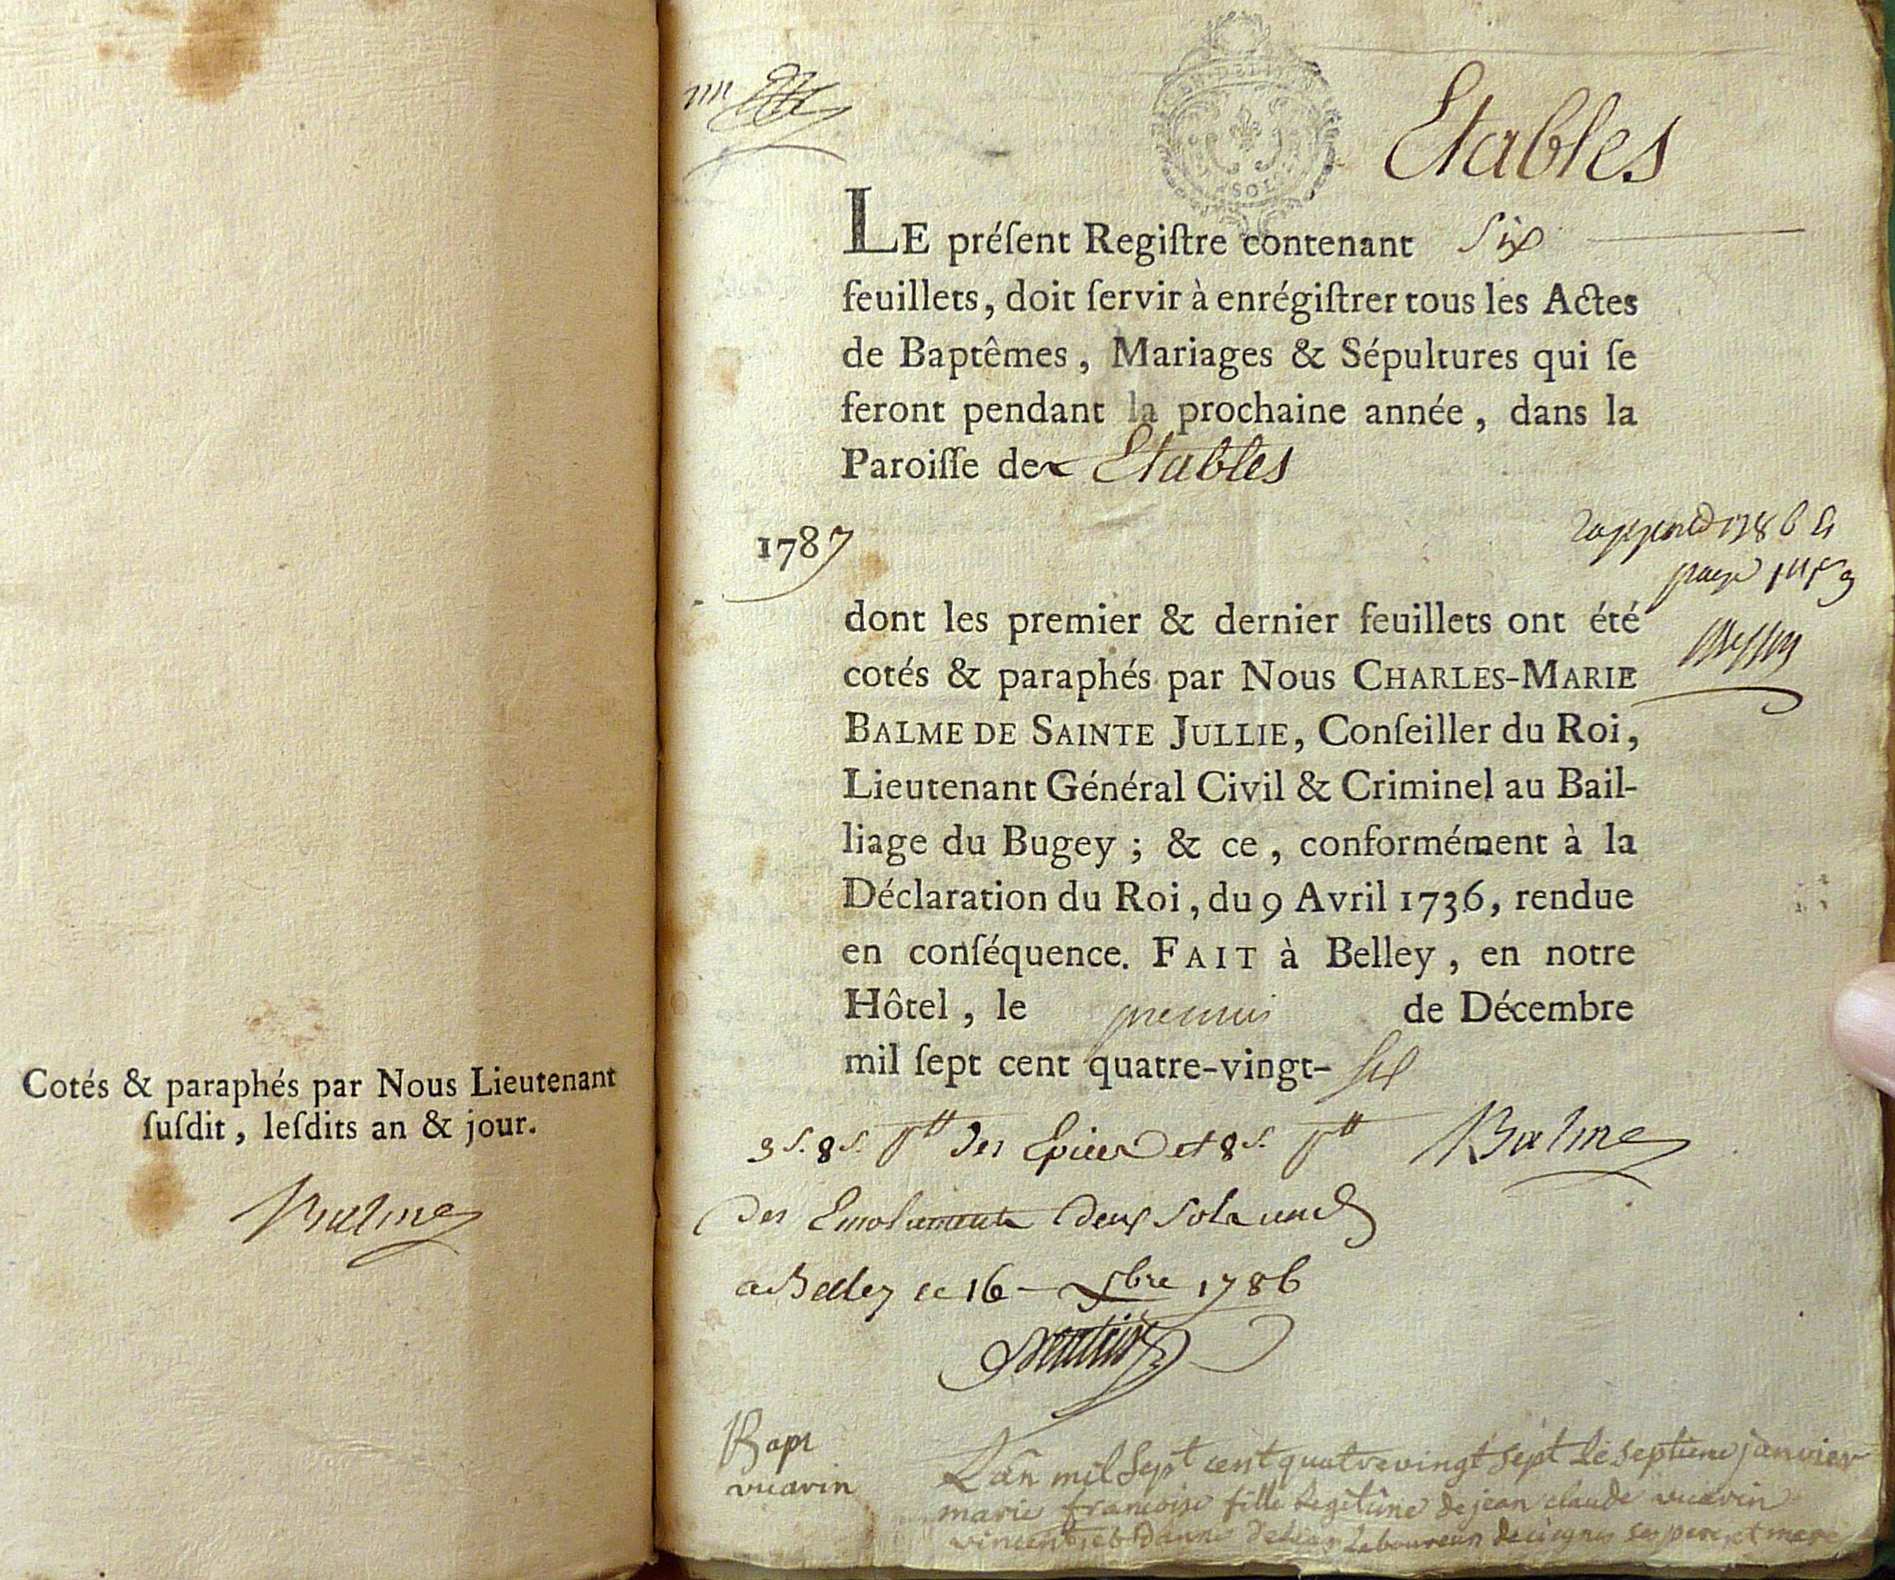 Cotés & paraphés par Nous Lieutenant
suſdit, leſdits an & jour.
Balme
Etables
LE préſent Regiſtre contenant six
feuillets, doit ſervir à enrégiſtrer tous les Actes
de Baptêmes, Mariages & Sépultures qui ſe
feront pendant la prochaine année, dans la
Paroiſſe de Etables
1787
1786
dont les premier & dernier feuillets ont été
cotés & paraphés par Nous CHARLES-MARIE
BALME DE SAINTE JULLIE, Conſeiller du Roi,
Lieutenant Général Civil & Criminel au Bail-
liage du Bugey ; & ce, conformément à la
Déclaration du Roi, du 9 Avril 1736, rendue
en conſéquence. FAIT à Belley, en notre
Hôtel, le premier de Décembre
mil ſept cent quatre-vingt- six
3 s. 8 s. des Epices et 8 s. Balme
des Emoluments deux sols
a Belley ce 16 xbre 1786
Bapt
vucarin
L'an mil sept cent quatrevingt sept le septieme janvier
marie francoise fille legitime de jean claude vucarin
laboureur ses pere et mere